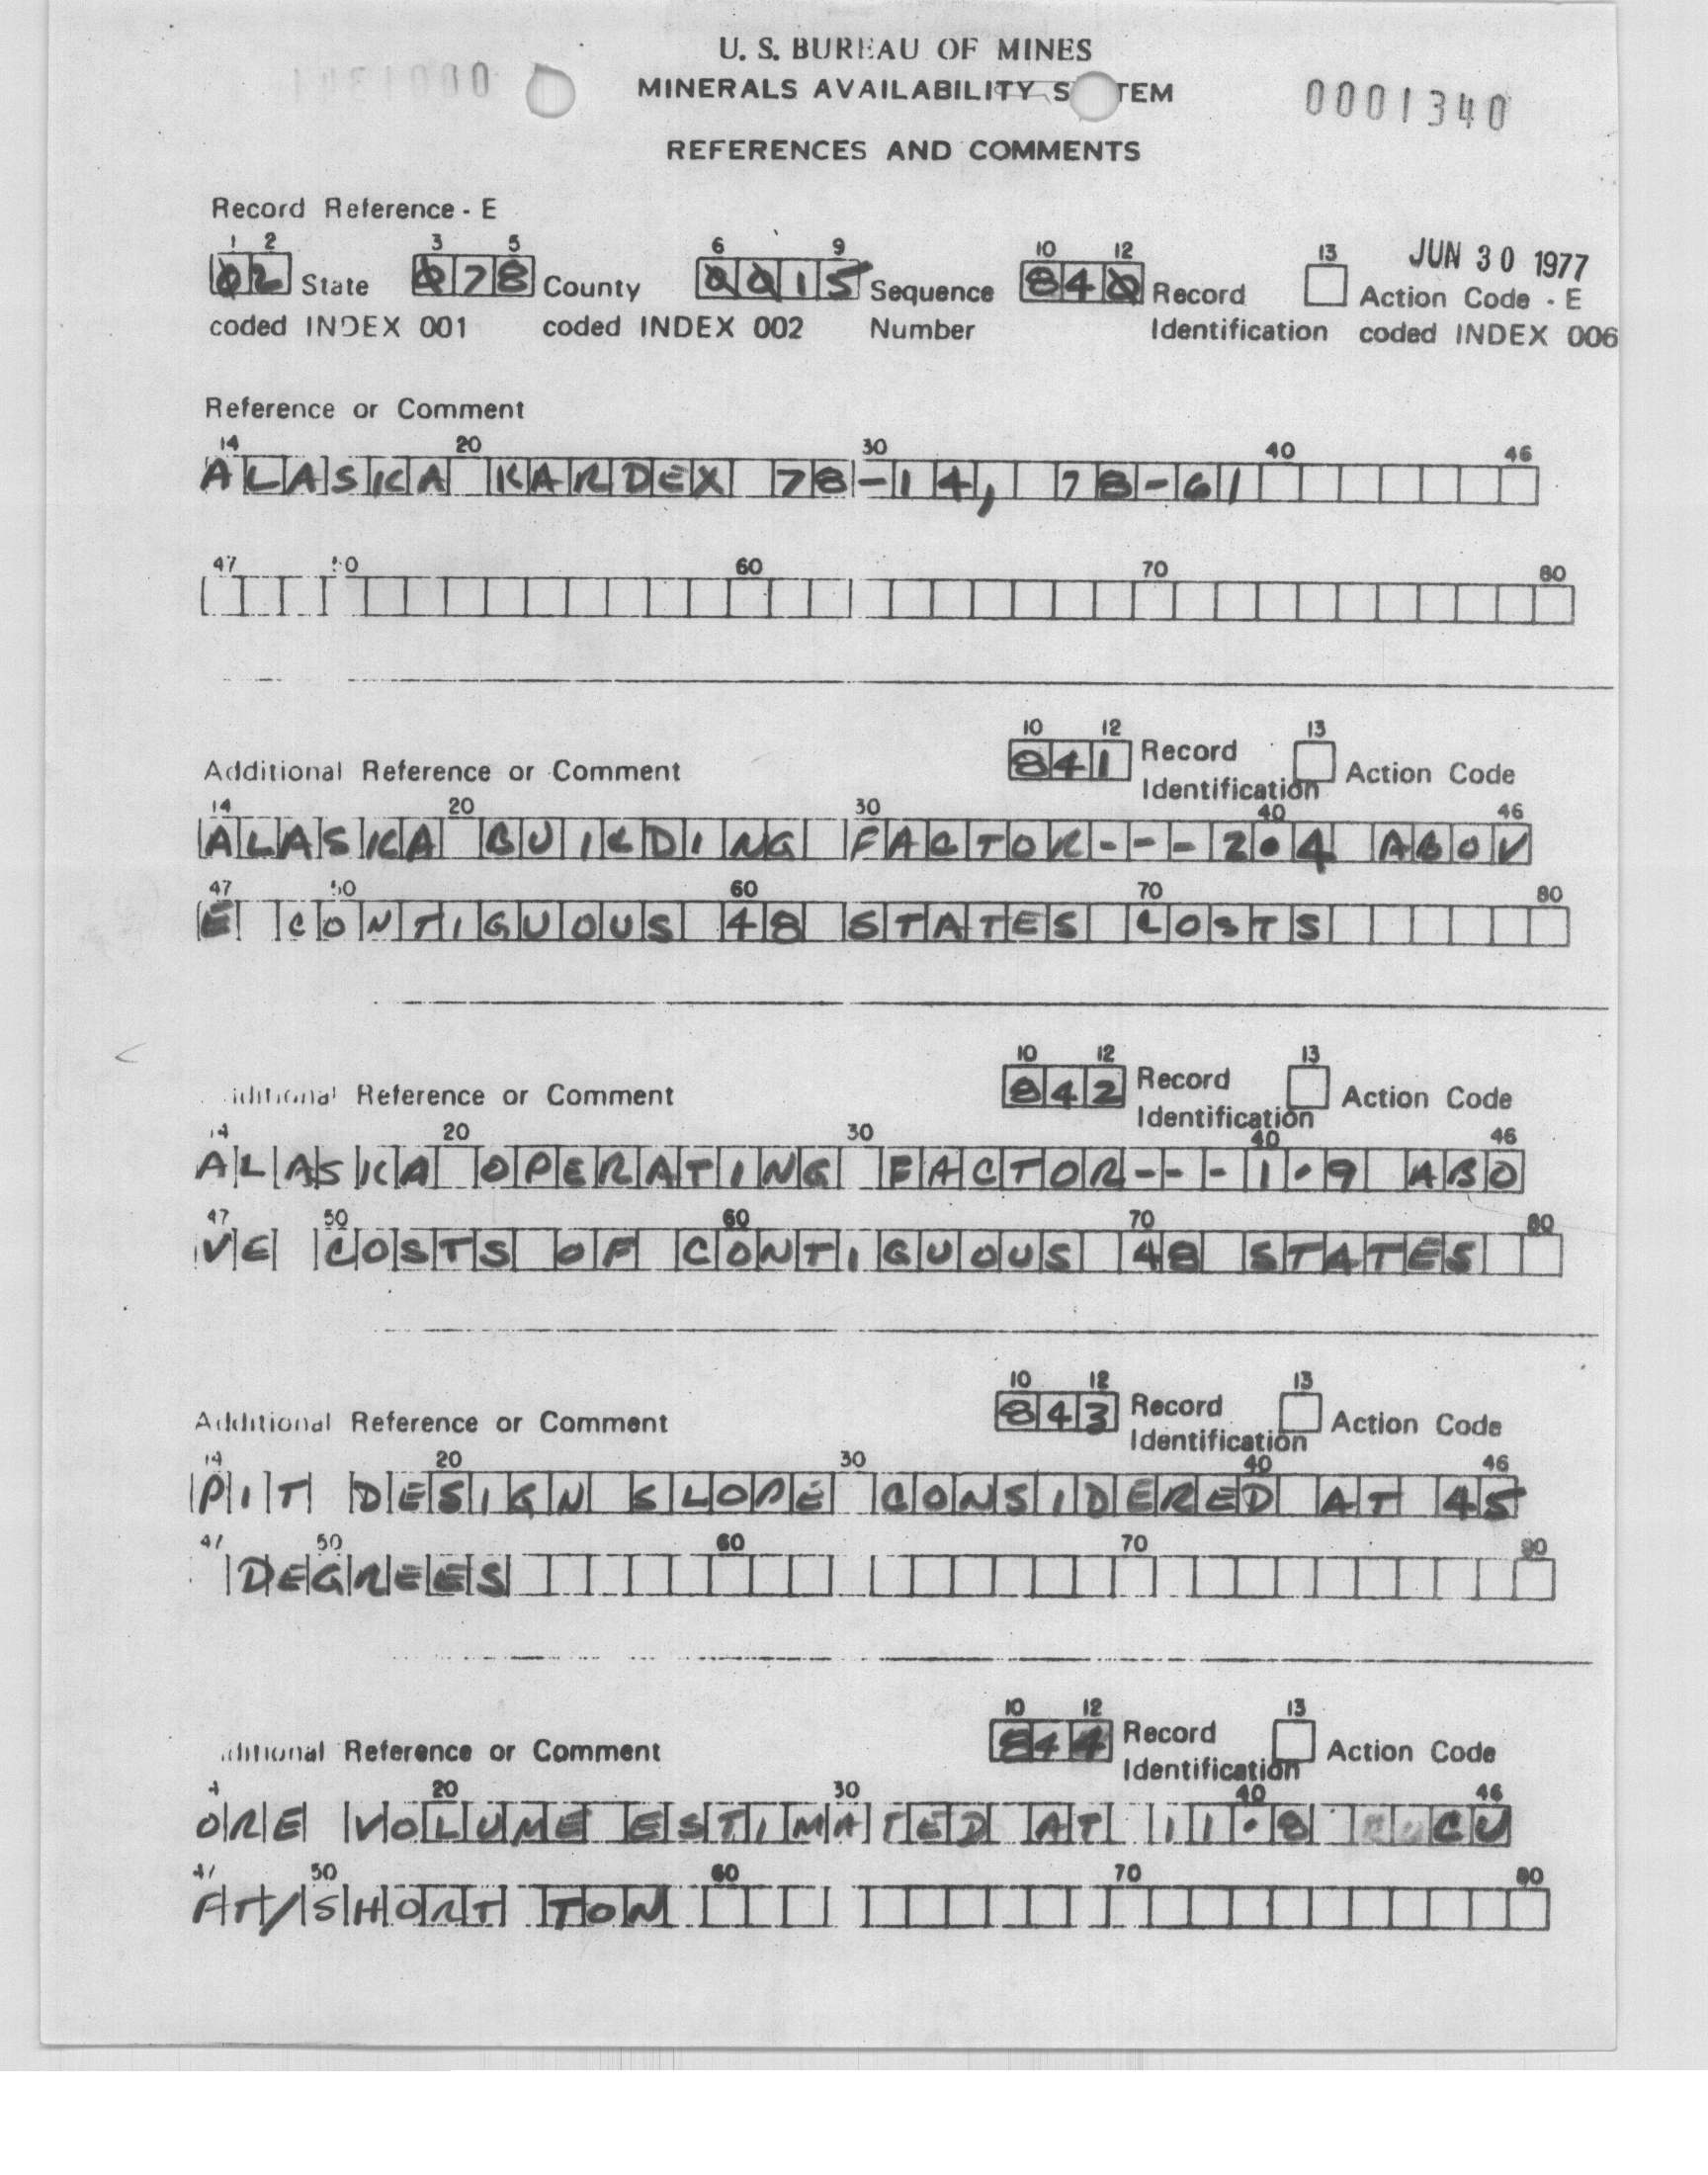 U. S. BUREAU OF MINES
MINERALS AVAILABILITY S TEM
0001340
REFERENCES AND COMMENTS
Record Reference - E
JUN 30 1977
1 2 3 5 6 9 10 12 13
02 State 078 County 0015 Sequence 840 Record Action Code - E
coded INDEX 001 coded INDEX 002 Number Identification coded INDEX 006
Reference or Comment
14 20 30 40 46
ALASKA KARDEX 78-14, 78-61
47 50 60 70 80
10 12 13
841 Record
Additional Reference or Comment Identification Action Code
14 20 30 40 46
ALASKA BUILDING FACTOR---2.4 ABOV
47 50 60 70 80
E CONTIGUOUS 48 STATES COSTS
10 12 13
842 Record
Additional Reference or Comment Identification Action Code
14 20 30 40 46
ALASKA OPERATING FACTOR---1.9 ABO
47 50 60 70 80
VE COSTS OF CONTIGUOUS 48 STATES
10 12 13
843 Record
Additional Reference or Comment Identification Action Code
14 20 30 40 46
PIT DESIGN SLOPE CONSIDERED AT 45
47 50 60 70 80
DEGREES
10 12 13
844 Record
Additional Reference or Comment Identification Action Code
4 20 30 40 46
ORE VOLUME ESTIMATED AT 11.8 CU
47 50 60 70 80
FT/SHORT TON